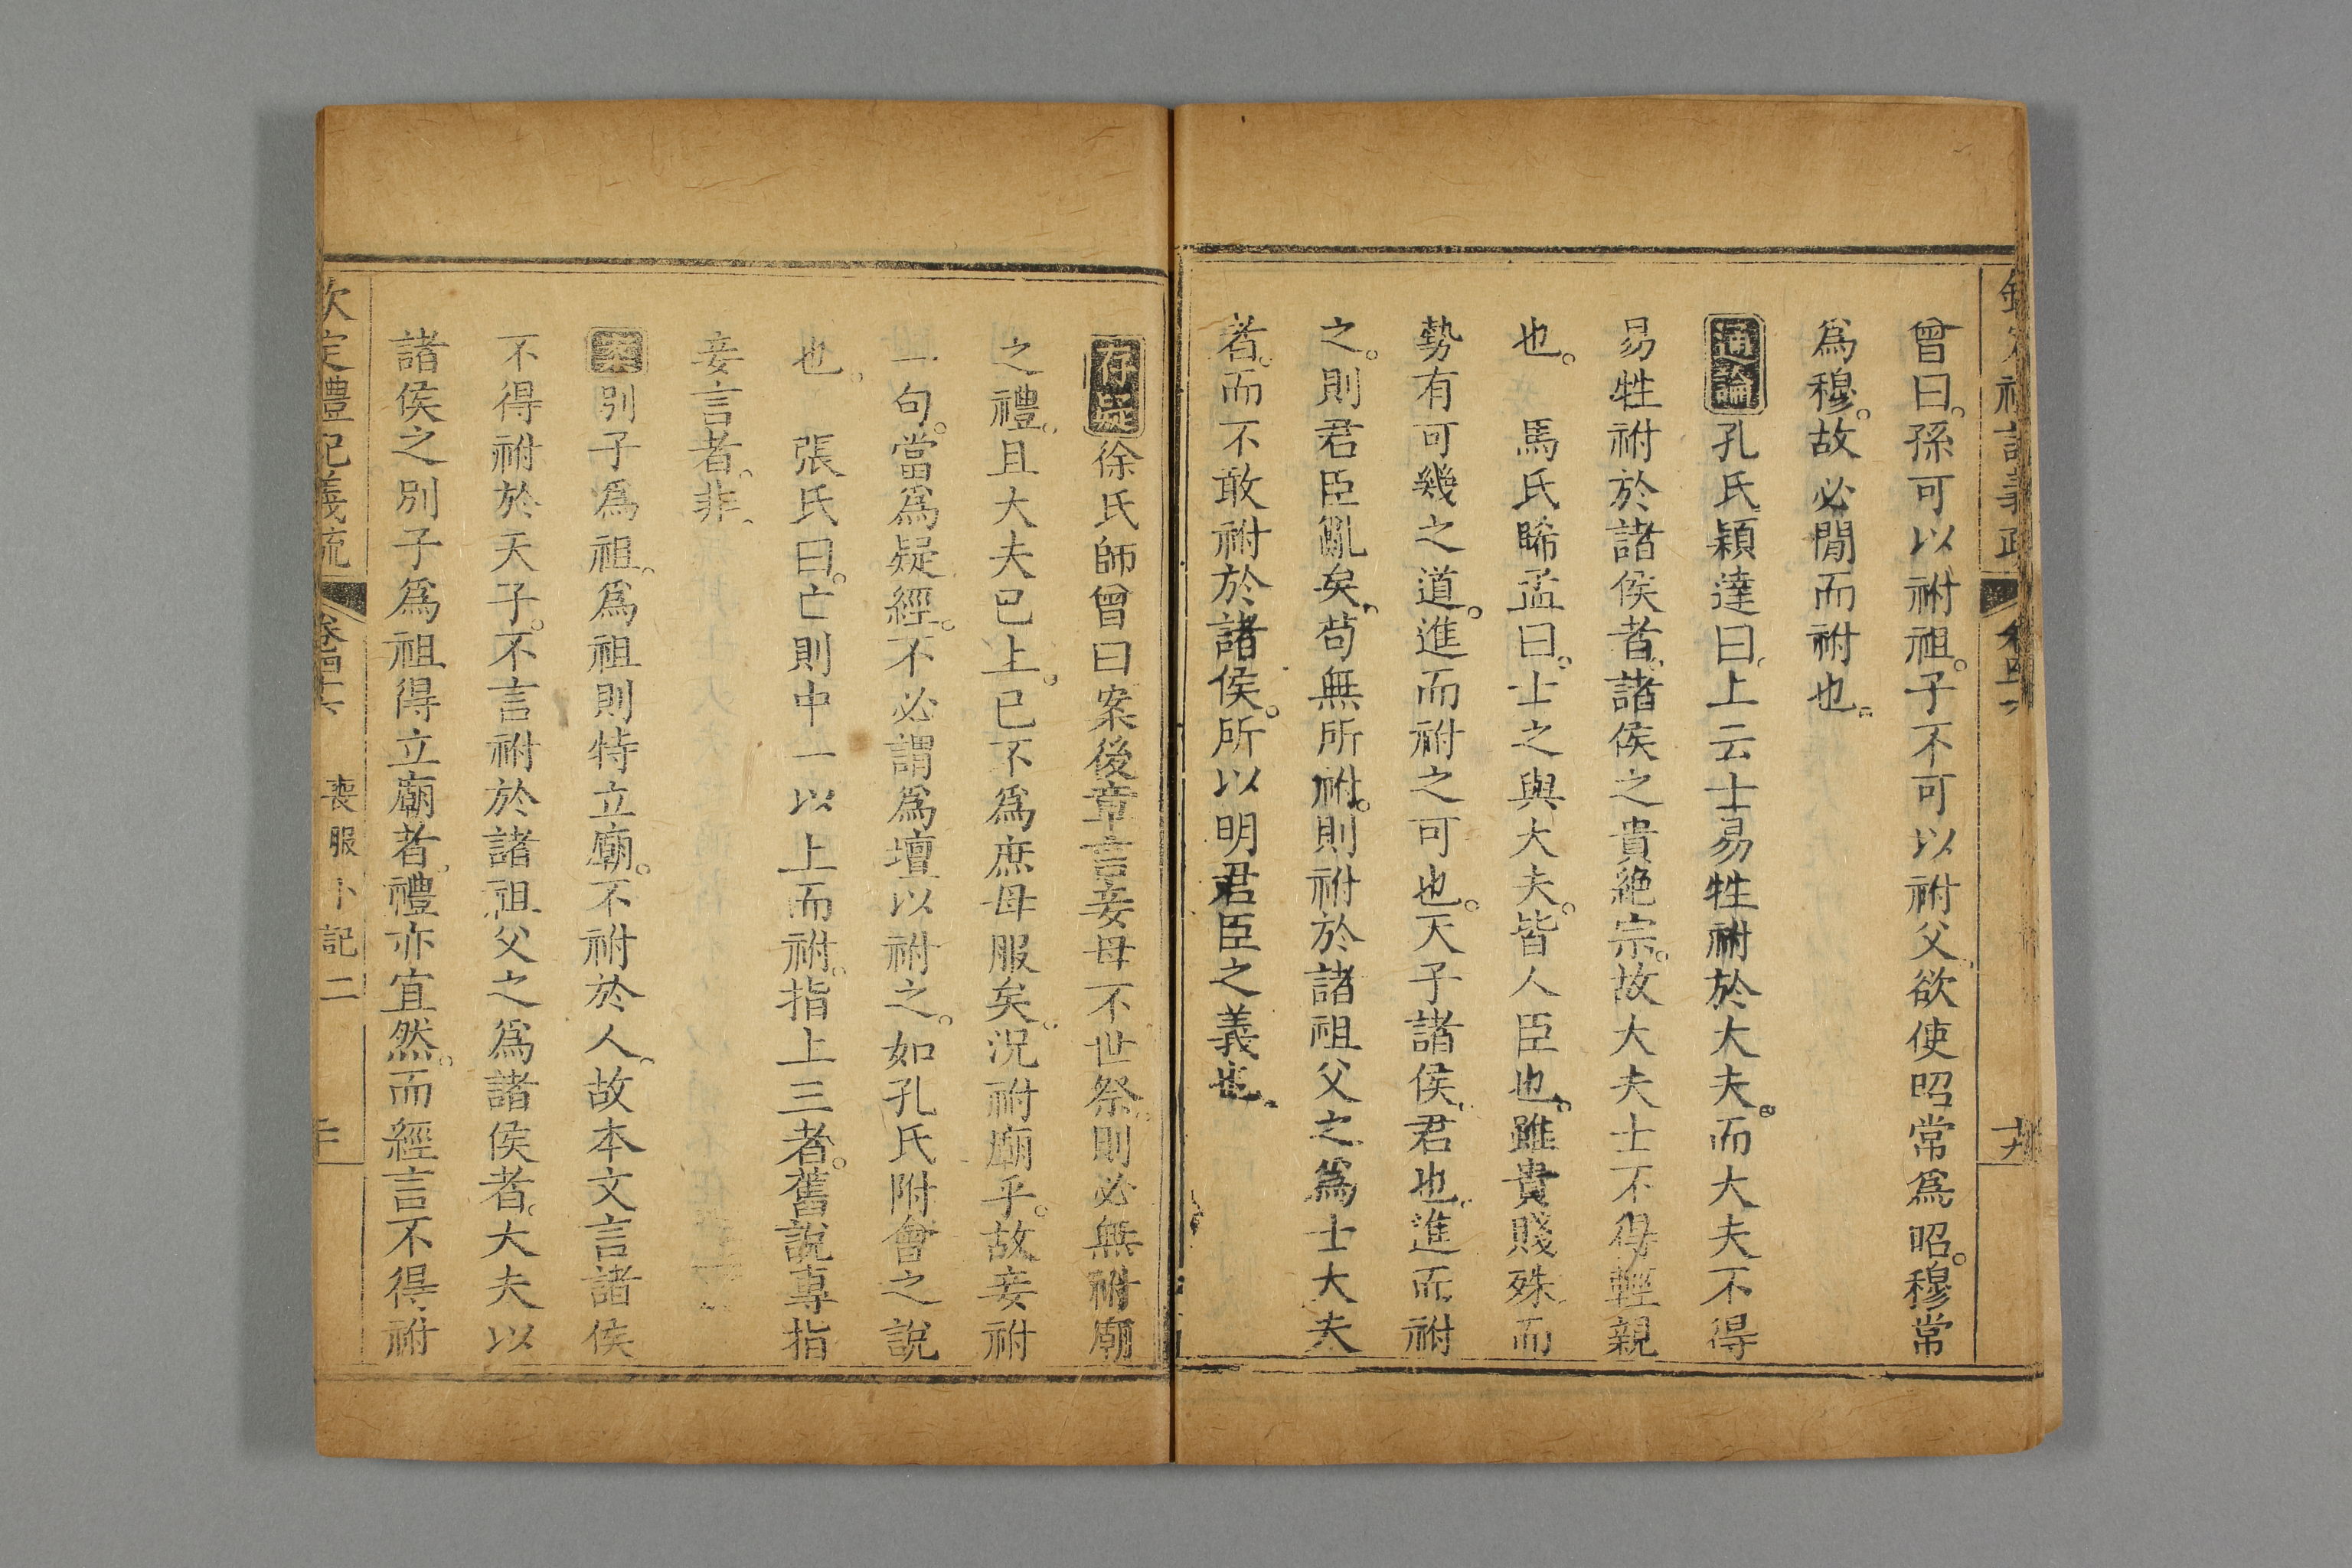 曾曰。孫可以祔祖。子不可以祔父。欲使昭常爲昭。穆常
爲穆。故必閒而祔也。
通論孔氏穎達曰。上云士易牲祔於大夫。而大夫不得
易牲祔於諸侯者。諸侯之貴絶宗。故大夫士不得輕親
也。 馬氏睎孟曰。士之與大夫。皆人臣也。雖貴賤殊而
勢有可幾之道。進而祔之可也。天子諸侯。君也。進而祔
之。則君臣亂矣。苟無所祔。則祔於諸祖父之爲士大夫
者。而不敢祔於諸侯。所以明君臣之義也。
存疑徐氏師曾曰案後章言妾母不世祭。則必無祔廟
之禮。且大夫巳上。已不爲庶母服矣。況祔廟乎。故妾祔
一句。當爲疑經。不必謂爲壇以祔之。如孔氏附會之說
也。 張氏曰。亡則中一以上而祔。指上三者。舊說專指
妾言者。非。
案別子爲祖。爲祖則特立廟。不祔於人。故本文言諸侯
不得祔於天子。不言祔於諸祖父之爲諸侯者。大夫以
諸侯之別子爲祖得立廟者。禮亦宜然。而經言不得祔
欽定禮記義疏 卷四十六 喪服小記二